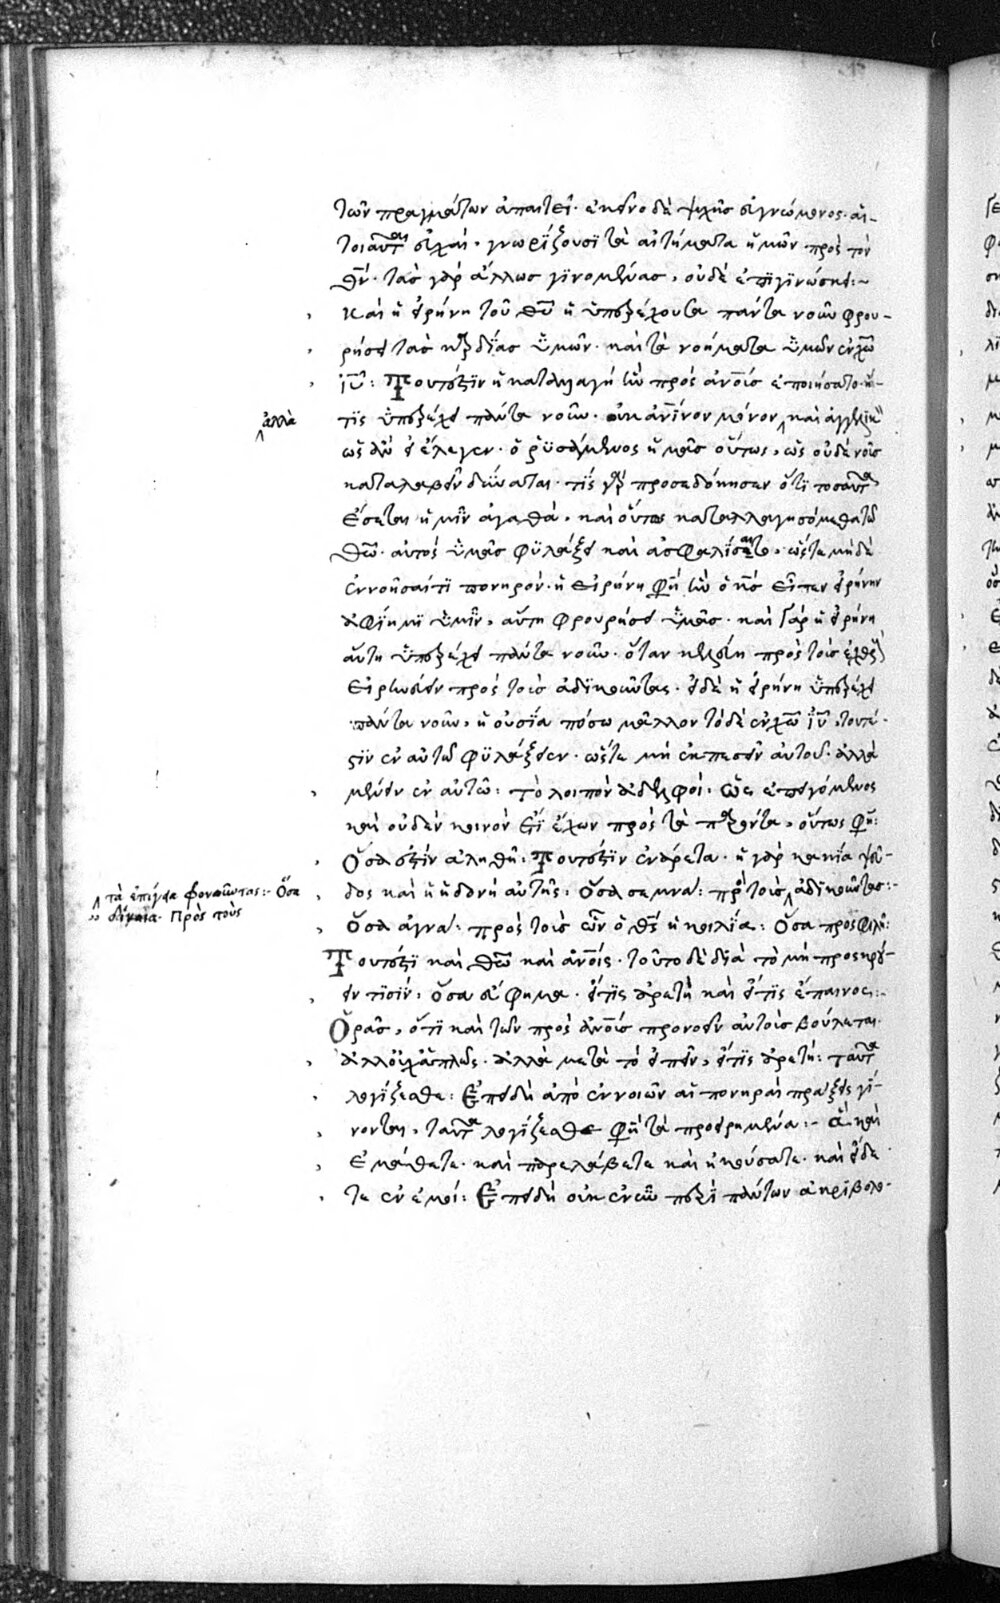 τῶν πραγμάτων ἀπαιτεῖ· ἐκεῖνο δὲ ψυχῆς εὐγνώμονος· αἱ
τοιαῦται εὐχαὶ· γνωρίζουσι τὰ αἰτήματα ἡμῶν πρὸς τὸν
θν̄· τὰς γὰρ ἄλλως γινομένας, οὐδὲ ἐπιγινώσκει:~
Καὶ ἡ εἰρήνη τοῦ θῡ ἡ ὑπερέχουσα πάντα νοῦν φρου-
ρήσει τὰς καρδίας ὑμῶν· καὶ τὰ νοήματα ὑμῶν ἐν χω̄
ιῡ: Τουτέστιν ἡ καταλλαγή ἣν πρὸς ἀνοις ἐποιήσατο· ἥ-
τις ὑπερέχει πάντα νοῦν· οὐκ ἀνινον μόνον καὶ ἀγγελικ
ἀλλὰ
ὡς ἂν εἰ ἔλεγεν· ὁ ῥυσάμενος ἡμᾶς οὕτως, ὡς οὐδὲ νοῦς
καταλαβεῖν δύναται· τίς γὰρ προσεδόκησεν ὅτι τοσαῦτα
ἔσεται ἡμῖν ἀγαθά, καὶ οὕτως καταλλαγησόμεθα τῶ
θω̄· αὐτὸς ὑμᾶς φυλάξει καὶ ἀσφαλίσαιτο, ὥστε μηδὲ
ἐννοῆσαί τι πονηρόν· ἢ εἰρήνη φη ἣν ὁ κς̄ εἶπεν εἰρήνην
ἀφίημι ὑμῖν, αὕτη φρουρήσει ὑμᾶς· καὶ γὰρ ἡ εἰρήνη
αὕτη ὑπερέχει πάντα νοῦν· ὅταν κελεύη πρὸς τοὺς ἐχθροὺς
εἰρηνεύειν πρὸς τοὺς ἀδικοῦντας· εἰ δὲ ἡ εἰρήνη ὑπερέχει
πάντα νοῦν, ἡ οὐσία πόσω μᾶλλον τὸ δὲ ἐν χω̄ ιῡ, τουτέ-
στιν ἐν αὐτῶ φυλάξειεν· ὥστε μὴ ἐκπεσεῖν αὐτοῦ· ἀλλὰ
μένειν ἐν αὐτῶ: Τὸ λοιπὸν ἀδελφοί· Ὡς ἐπειγόμενος
καὶ οὐδὲν κοινὸν ἔτι ἔχων πρὸς τὰ παρόντα, οὕτως φη:
Ὅσα ἐστὶν ἀληθῆ· Τουτέστιν ἐνάρετα· ἡ γὰρ κακία ψεῦ-
δος καὶ ἡ ἡδονὴ αὐτῆς: Ὅσα σεμνὰ: πρὸς τοὺς ἀδικοῦντας:-
τὰ ἐπίγεια φρονοῦντας:- Ὅσα
δίκαια· Πρὸς τοὺς
Ὅσα ἁγνὰ: πρὸς τοὺς ὧν ὁ θς̄ ἡ κοιλία: Ὅσα προσφιλῆ:
Τουτέστι καὶ θω̄ καὶ ἀνοις· τοῦτο δὲ διὰ τὸ μὴ προσκρού-
ειν τισὶν: ὅσα εὔφημα· εἴ τις ἀρετὴ καὶ εἴ τις ἔπαινος:-
Ὁρᾶς, ὅτι καὶ τῶν πρὸς ἀνοις προνοεῖν αὐτοὺς βούλεται·
ἀλλ' οὐχ ἁπλῶς· ἀλλὰ μετὰ τὸ εἰπεῖν, εἴ τις ἀρετὴ: ταῦτα
λογίζεσθε: Ἐπειδὴ ἀπὸ ἐννοιῶν αἱ πονηραὶ πράξεις γί-
νονται, ταῦτα λογίζεσθε φη τὰ προειρημένα:- ἃ καὶ
ἐμάθετε· καὶ παρελάβετε καὶ ἠκούσατε· καὶ εἴδε
τε ἐν ἐμοί: Ἐπειδὴ οὐκ ἐνῆν περὶ πάντων ἀκριβολο-